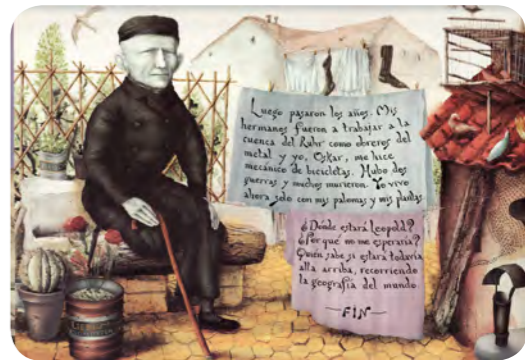 Luego pasaron los años. Mis
hermanos fueron a trabajar a la
cuenca del Ruhr como obreros del
metal y yo, Oskar, me hice
mecánico de bicicletas. Hubo dos
guerras y muchos murieron. Yo vivo
ahora solo con mis palomas y mis plantas
¿Dónde estará Leopold?
¿Por qué no me esperaría?
Quién sabe si estará todavía
allá arriba, recorriendo
la geografía del mundo.
—FIN—